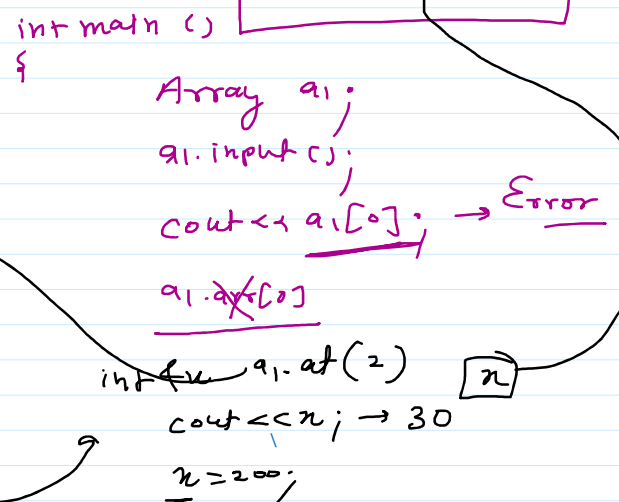 int main ()
{
Array a1;
a1.input();
cout<< a1[0]; → Error
a1.arr[0]
int &x a1.at(2)
x
cout<<x; → 30
x=200;